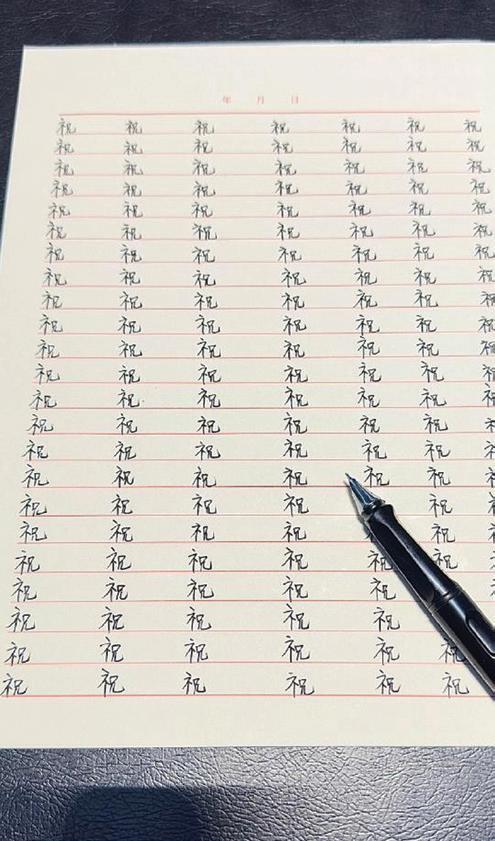 年 月 日
祝 祝 祝 祝 祝 祝 祝
祝 祝 祝 祝 祝 祝 祝
祝 祝 祝 祝 祝 祝 祝
祝 祝 祝 祝 祝 祝 祝
祝 祝 祝 祝 祝 祝 祝
祝 祝 祝 祝 祝 祝 祝
祝 祝 祝 祝 祝 祝 祝
祝 祝 祝 祝 祝 祝 祝
祝 祝 祝 祝 祝 祝
祝 祝 祝 祝 祝 祝
祝 祝 祝 祝 祝 祝
祝 祝 祝 祝 祝 祝
祝 祝 祝 祝 祝 祝
祝 祝 祝 祝 祝 祝
祝 祝 祝 祝 祝 祝
祝 祝 祝 祝 祝 祝
祝 祝 祝 祝 祝
祝 祝 祝 祝 祝
祝 祝 祝 祝 祝 祝
祝 祝 祝 祝 祝
祝 祝 祝 祝 祝
祝 祝 祝 祝 祝 祝
祝 祝 祝 祝 祝 祝